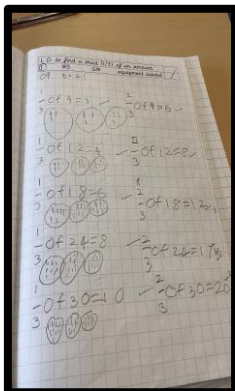 L.O. to find a third (1/3) of an amount
equipment needed
1/3 of 9=3 2/3 of 9=6
1/3 of 12=4 2/3 of 12=8
1/3 of 18=6 2/3 of 18=12
1/3 of 24=8 2/3 of 24=
1/3 of 30=10 2/3 of 30=20